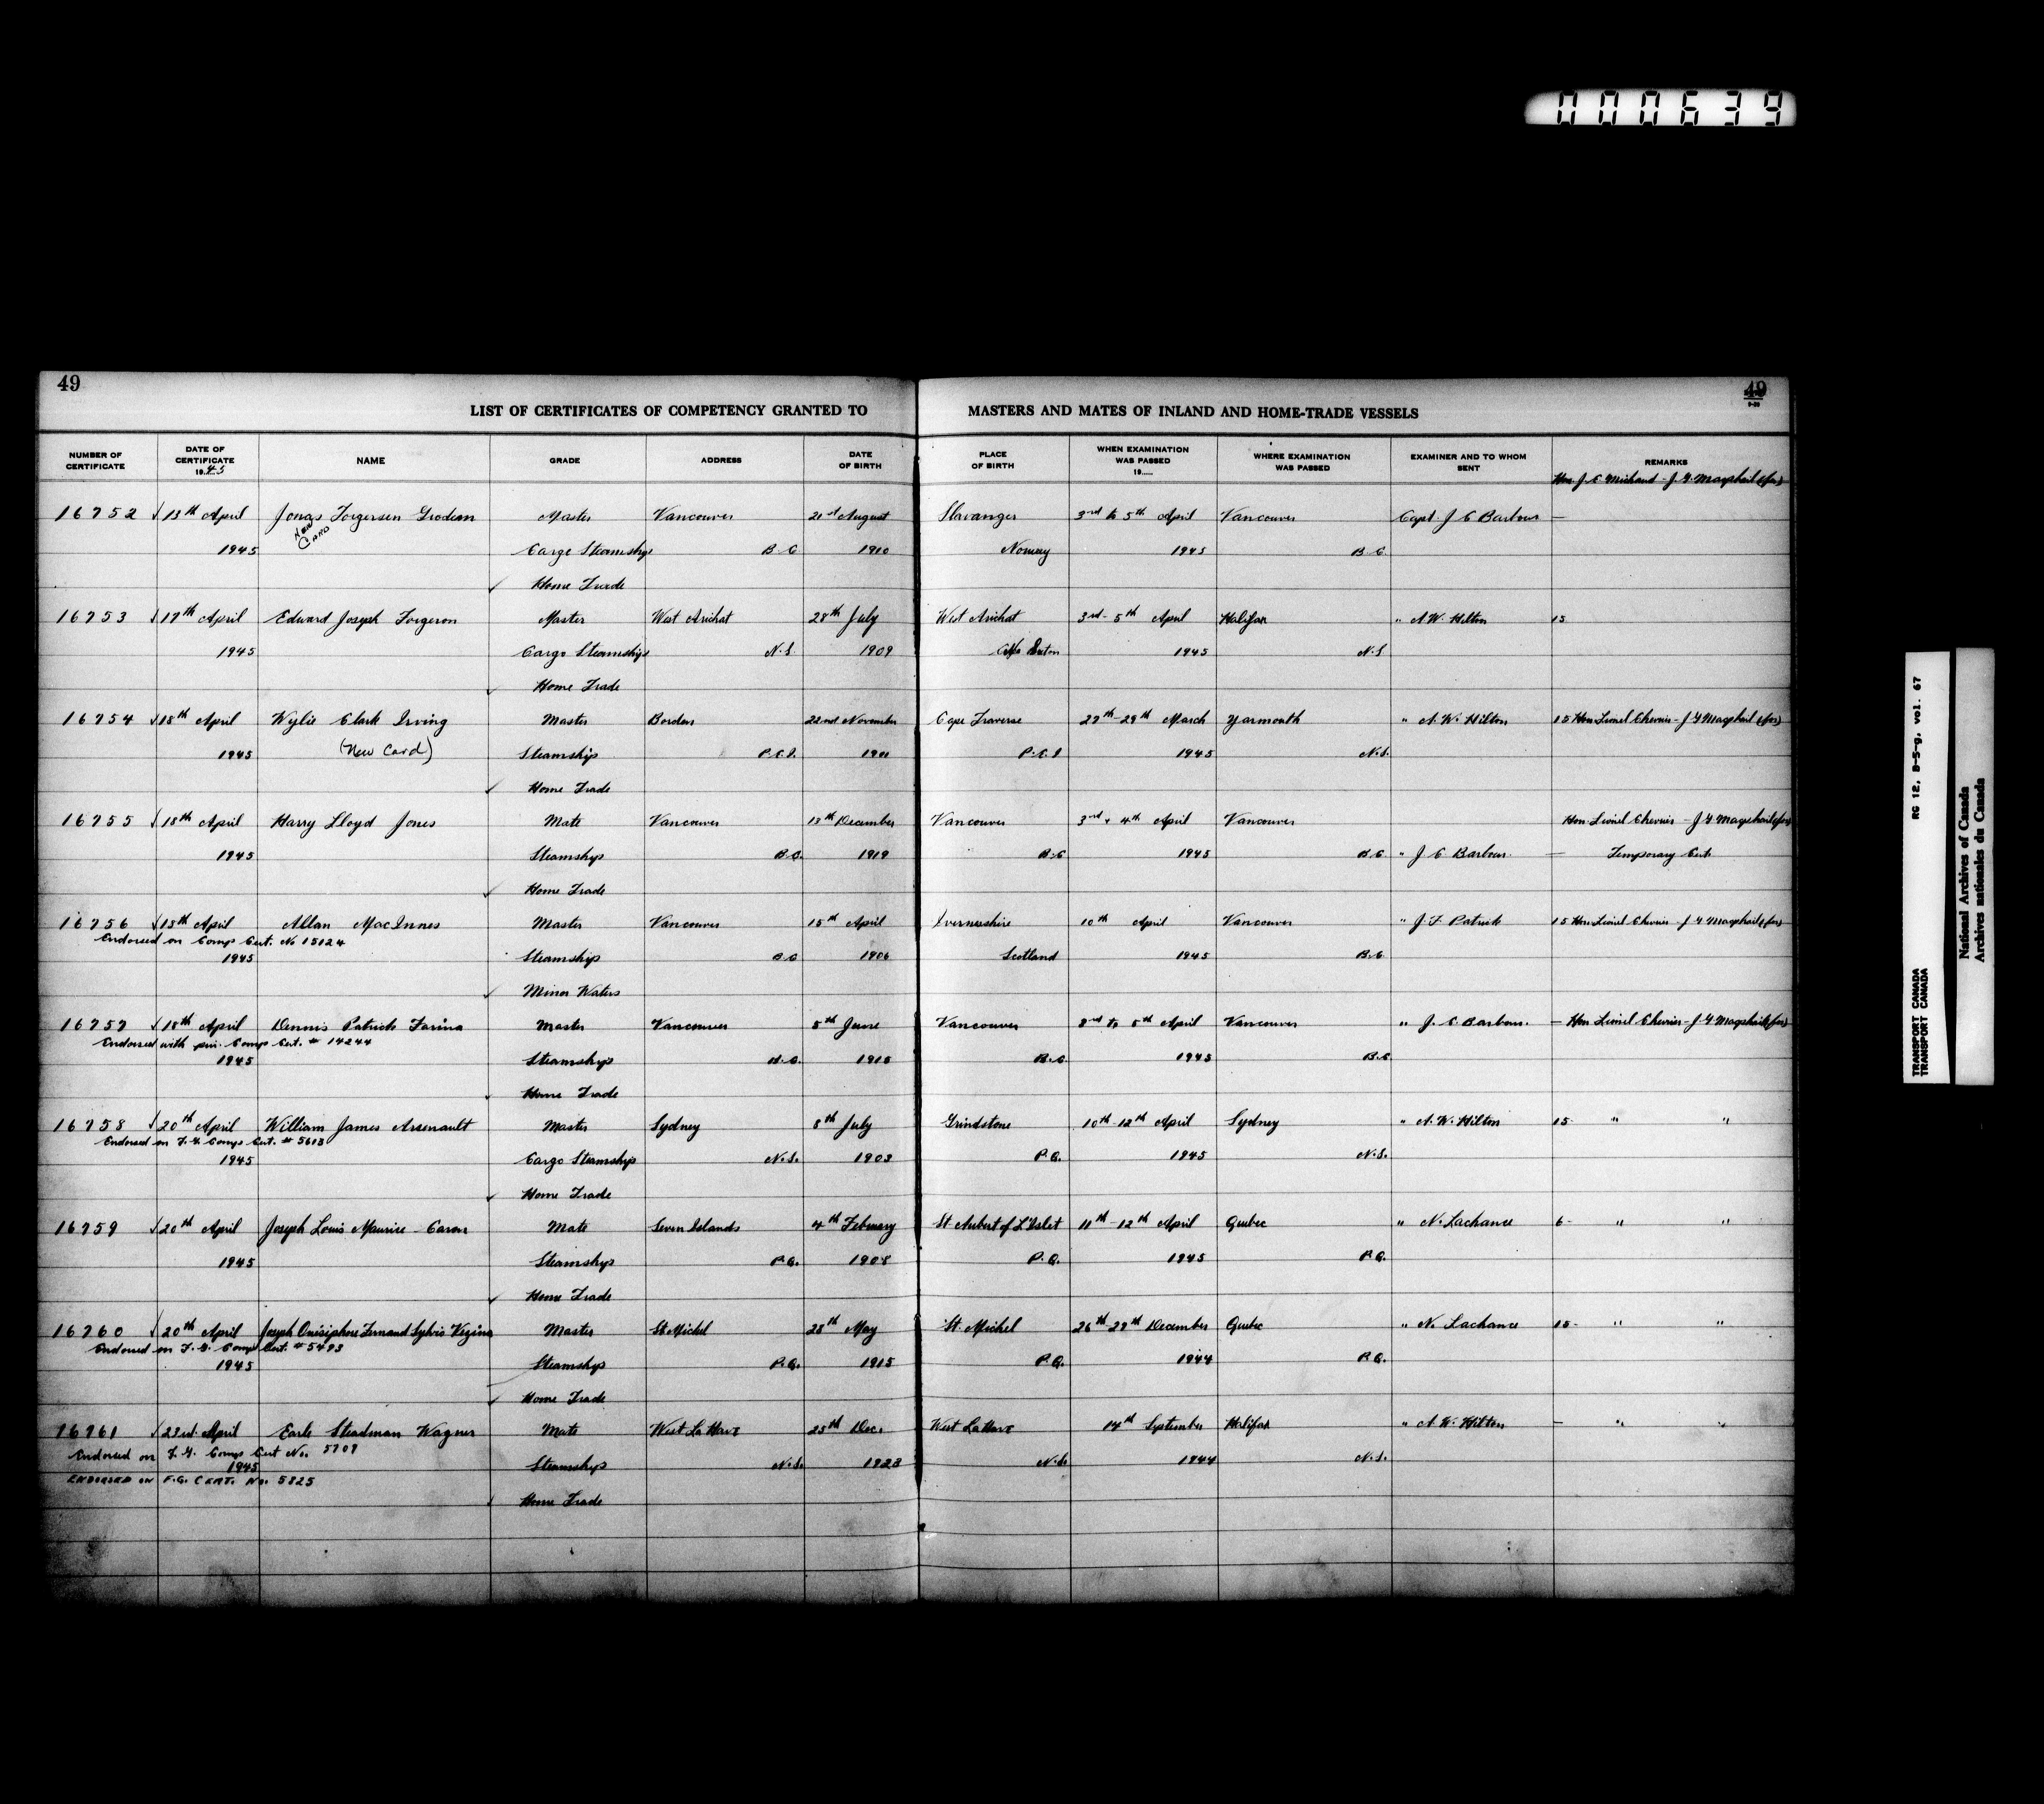 000639
49
49
9-39
LIST OF CERTIFICATES OF COMPETENCY GRANTED TO MASTERS AND MATES OF INLAND AND HOME-TRADE VESSELS
NUMBER OF CERTIFICATE DATE OF CERTIFICATE 1945 NAME GRADE ADDRESS DATE OF BIRTH PLACE OF BIRTH WHEN EXAMINATION WAS PASSED 19..... WHERE EXAMINATION WAS PASSED EXAMINER AND TO WHOM SENT REMARKS
Hon J. E. Michaud - J. G. Macphail (for)
16752 13th April Jonas Torgersen Grodem Master Vancouver 21st August Stavanger 3rd to 5th April Vancouver Capt. J E Barbour —
New Card
1945 Cargo Steamships B.C. 1910 Norway 1945 B.C.
Home Trade
16753 17th April Edward Joseph Forgeron Master West Arichat 28th July West Arichat 3rd - 5th April Halifax " A. W. Hilton 15
1945 Cargo Steamships N.S. 1909 Cape Breton 1945 N.S.
Home Trade
16754 18th April Wylie Clark Irving Master Borden 22nd November Cape Traverse 27th-29th March Yarmouth " A. W. Hilton 15 Hon. Lionel Chevrier - J G Macphail (for)
(New Card)
1945 Steamship P.E.I. P.E.I 1945 N.S.
Home Trade
16755 18th April Harry Lloyd Jones Mate Vancouver 13th December Vancouver 3rd & 4th April Vancouver Hon. Lionel Chevrier - J G Macphail (for)
1945 Steamships B.C. 1919 B.C 1945 B.C. " J E Barbour — Temporary Cert.
Home Trade
16756 18th April Allan MacInnes Master Vancouver 15th April Invernesshire 10th April Vancouver " J. F. Patrick 15 Hon. Lionel Chevrier - J G Macphail (for)
Endorsed on Comp Cert. No 15124
1945 Steamships B.C 1906 Scotland 1945 B.C.
Minor Waters
16757 18th April Dennis Patrick Farina Master Vancouver 5th June Vancouver 3rd to 5th April Vancouver " J. E. Barbour. — Hon Lionel Chevrier - J G Macphail (for)
Endorsed with prev. Comp Cert. # 14244
1945 Steamships B.C. 1915 B.C. 1945 B.C.
Home Trade
16758 20th April William James Arsenault Master Sydney 8th July Grindstone 10th-12th April Sydney " A. W. Hilton 15- " "
Endorsed on F. G. Comp Cert. # 5613
1945 Cargo Steamships N.S. 1903 P.Q. 1945 N.S.
Home Trade
16759 20th April Joseph Louis Maurice - Caron Mate Seven Islands 4th February St Aubert of L'Islet 11th-12th April Quebec " N. Lachance 6- " "
1945 Steamships P.Q. 1908 P.Q. 1945 P.Q.
Home Trade
16760 20th April Joseph Onésiphore Fernand Sylvio Vezina Master St. Michel 28th May St. Michel 26th-29th December Quebec " N. Lachance 15- " "
Endorsed on F. G. Comp Cert. # 5493
1945 Steamships P.Q. 1915 P.Q. 1944 P.Q.
Home Trade
16761 23rd April Earle Steadman Wagner Mate West La Have 25th Dec. West La Have 14th September Halifax " A. W. Hilton — " "
Endorsed on F. G. Comp Cert No. 5709
1945 Steamships N.S. 1923 N.S. 1944 N.S.
ENDORSED ON F.G. CERT. No. 5825
Home Trade
RG 12, B-5-g, vol. 67
TRANSPORT CANADA
TRANSPORT CANADA
National Archives of Canada
Archives nationales du Canada